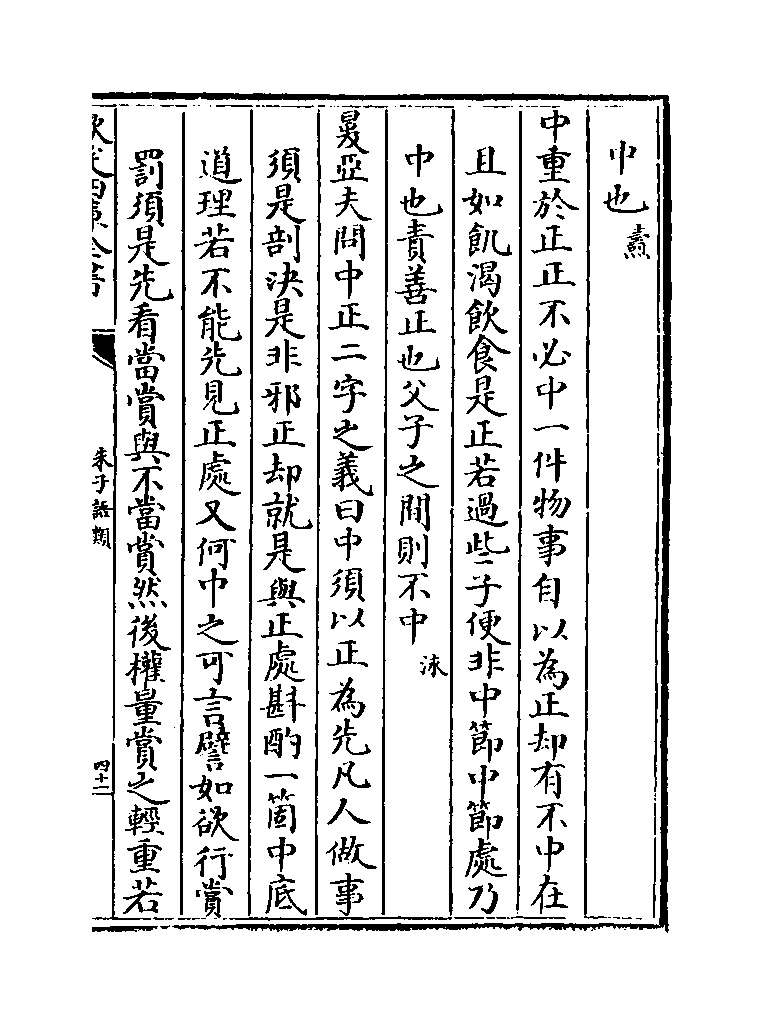 中也燾
中重於正正不必中一件物事自以為正却有不中在
且如飢渴飲食是正若過些子便非中節中節處乃
中也責善正也父子之間則不中洙
㬊亞夫問中正二字之義曰中須以正為先凡人做事
須是剖決是非邪正却就是與正處斟酌一箇中底
道理若不能先見正處又何中之可言譬如欲行賞
罰須是先看當賞與不當賞然後權量賞之輕重若
欽定四庫全書
朱子語類
四十二